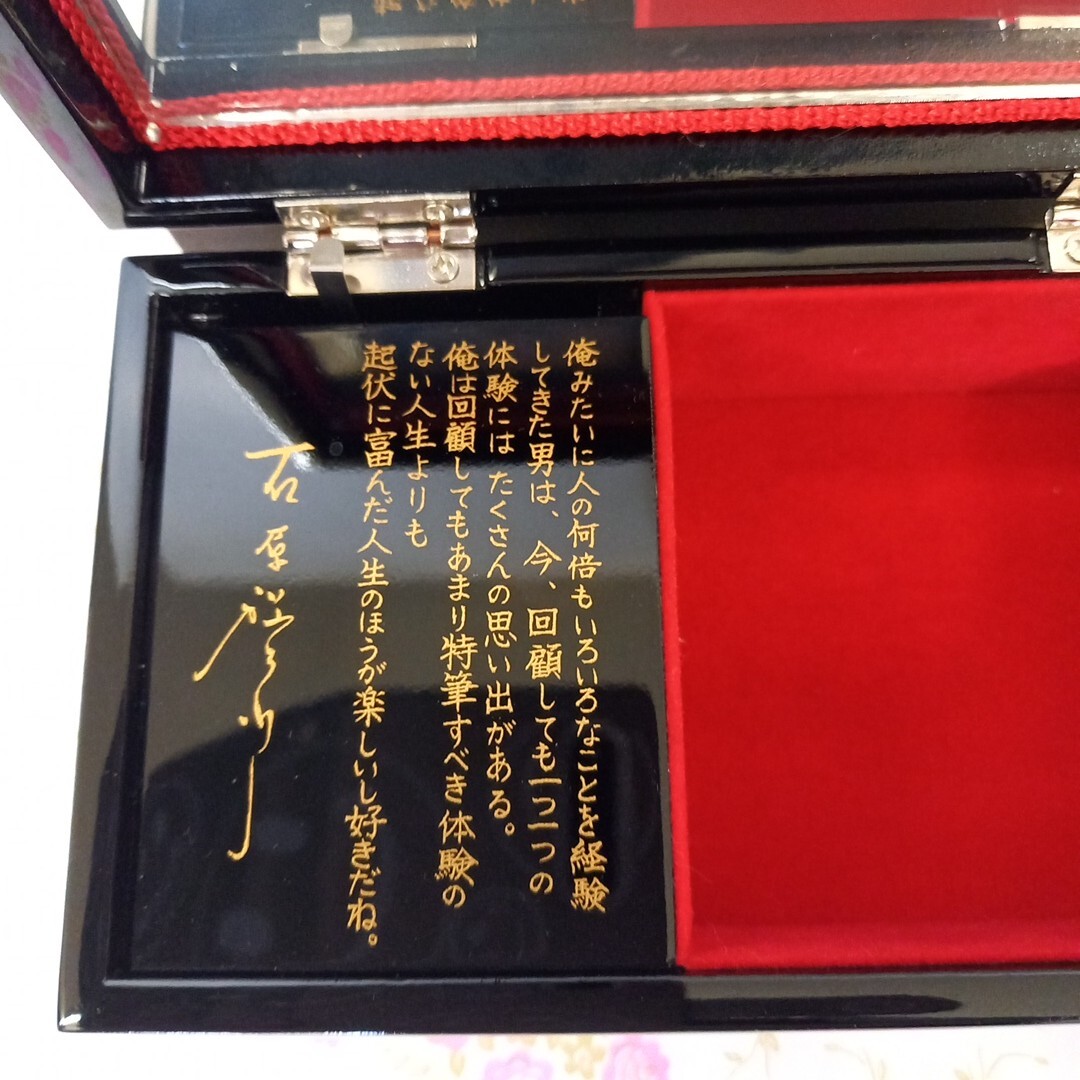 俺みたいに人の何倍もいろいろなことを経験
してきた男は、今、回顧しても一つ一つの
体験には たくさんの思い出がある。
俺は回顧してもあまり特筆すべき体験の
ない人生よりも
起伏に富んだ人生のほうが楽しいし好きだね。
石原裕次郎